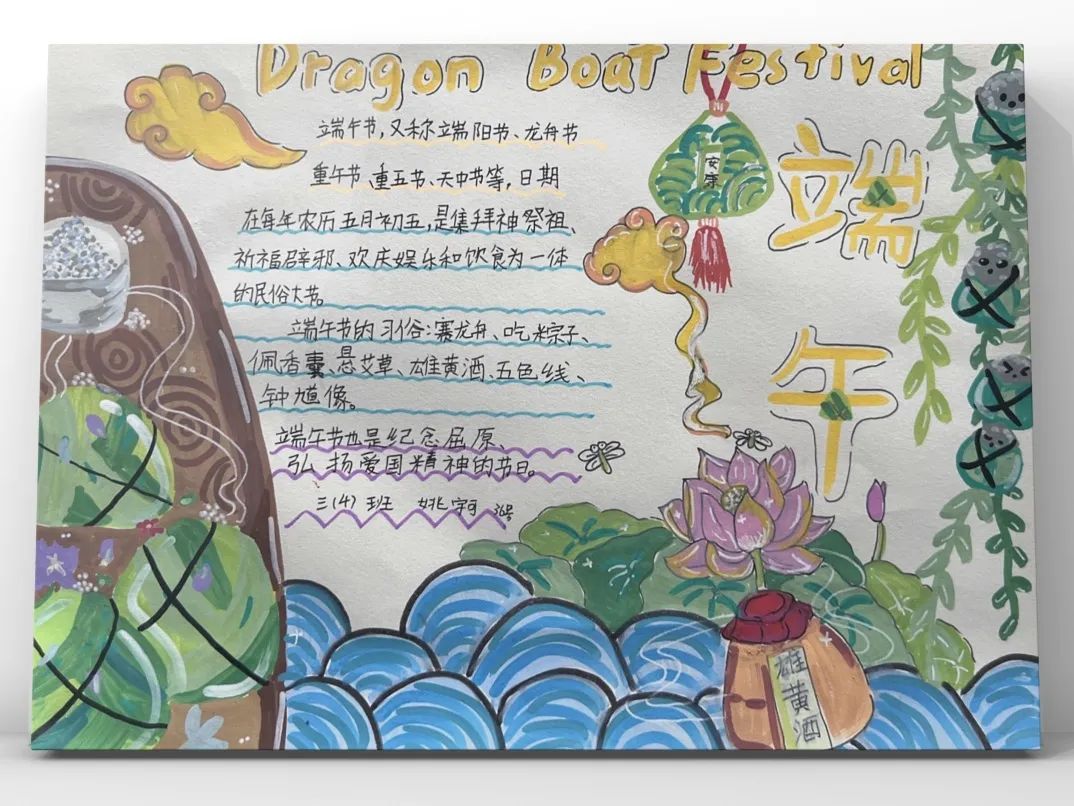 Dragon Boat Festival
端午节,又称端阳节、龙舟节
重午节、重五节、天中节等,日期
在每年农历五月初五,是集拜神祭祖、
祈福辟邪、欢庆娱乐和饮食为一体
的民俗大节。
端午节的习俗:赛龙舟、吃粽子、
佩香囊、悬艾草、雄黄酒、五色线、
钟馗像。
端午节也是纪念屈原、
弘扬爱国精神的节日。
三(4)班 姚宇珂 36号
安康
端午
雄黄酒